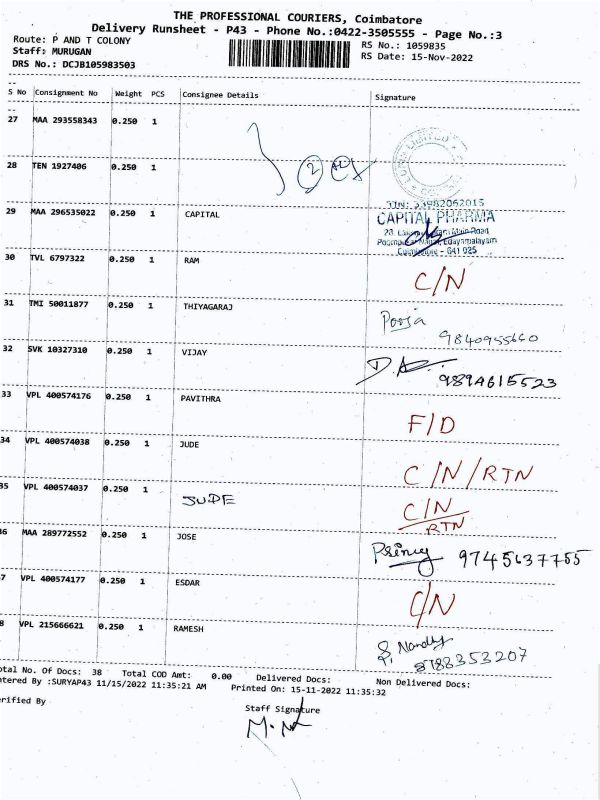 THE PROFESSIONAL COURIERS, Coimbatore
Delivery Runsheet - P43 - Phone No.:0422-3505555 - Page No.:3
Route: P AND T COLONY
RS No.: 1059835
Staff: MURUGAN
RS Date: 15-Nov-2022
DRS No.: DCJB105983503
S No Consignment No Weight PCS Consignee Details Signature
27 MAA 293558343 0.250 1
28 TEN 1927406 0.250 1
29 MAA 296535022 0.250 1 CAPITAL
CAPITAL PHARMA
Coimbatore - 641 025
30 TVL 6797322 0.250 1 RAM C/N
31 TMI 50011877 0.250 1 THIYAGARAJ Pooja
9840955660
32 SVK 10327310 0.250 1 VIJAY
9894615523
33 VPL 400574176 0.250 1 PAVITHRA F/D
34 VPL 400574038 0.250 1 JUDE C/N/RTN
35 VPL 400574037 0.250 1 JUDE C/N
RTN
36 MAA 289772552 0.250 1 JOSE 9745637755
7 VPL 400574177 0.250 1 ESDAR C/N
8 VPL 215666621 0.250 1 RAMESH S. Nandhy
8188353207
otal No. Of Docs: 38 Total COD Amt: 0.00 Delivered Docs: Non Delivered Docs:
ntered By :SURYAP43 11/15/2022 11:35:21 AM Printed On: 15-11-2022 11:35:32
erified By
Staff Signature